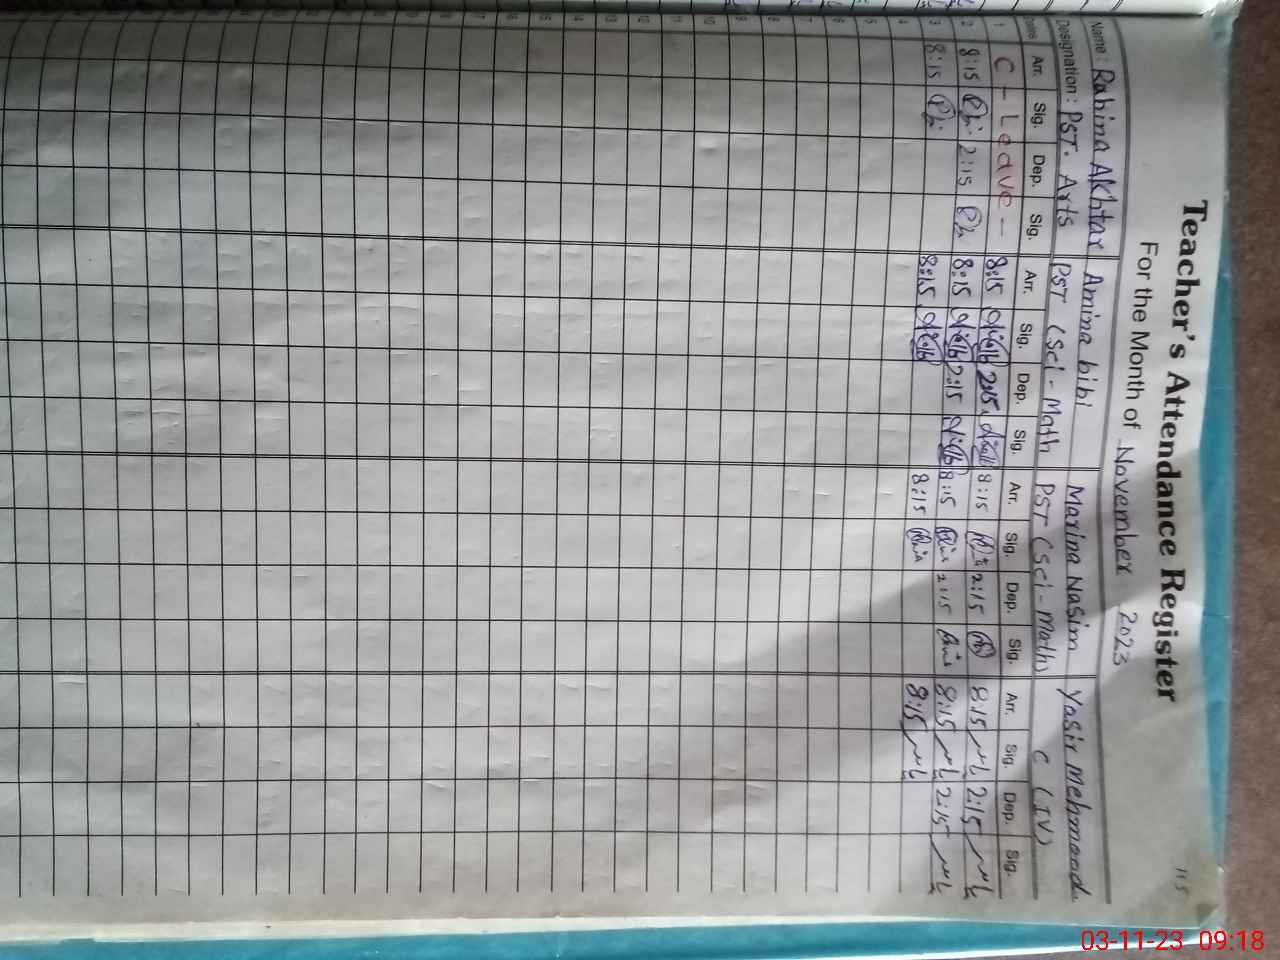 115
Teacher's Attendance Register
For the Month of November 2023
Name : Rahina Akhtar Amina bibi Marina Nasim Yasir Mehmood
Designation : PST. Arts PST (Sci-Math PST (Sci-Math) C (IV)
Date Arr. Sig. Dep. Sig. Arr. Sig. Dep. Sig. Arr. Sig. Dep. Sig. Arr. Sig. Dep. Sig.
1 C - Leave - 8:15 2:15 8:15 2:15 8:15 2:15
2 8:15 2:15 8:15 2:15 8:15 2:15 8:15 2:15
3 8:15 8:15 8:15 8:15
4
5
6
7
8
9
10
11
12
13
14
15
16
17
03-11-23 09:18